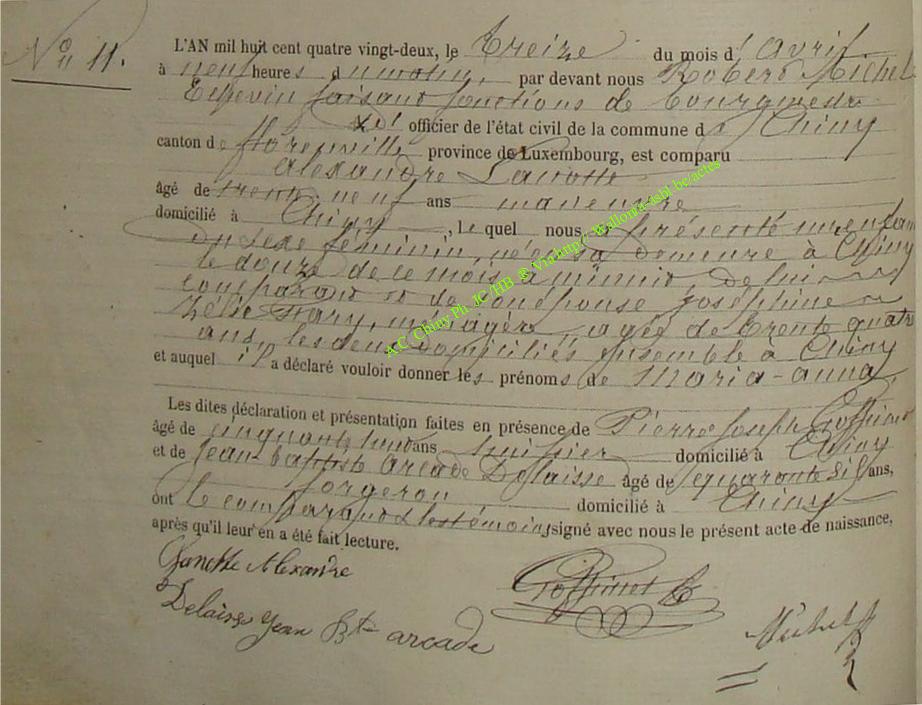 N° 11.
L'AN mil huit cent quatre vingt-deux, le treize du mois d'Avril
à neuf heures du matin, par devant nous Robert Michel
Echevin faisant fonctions de bourgmestre
officier de l'état civil de la commune de Chiny
canton de florenville province de Luxembourg, est comparu
Alexandre Lanotte
âgé de trente neuf ans manœuvre
domicilié à Chiny, le quel nous a présenté un enfant
du sexe féminin, né en sa demeure à Chiny
le douze de ce mois, à minuit, de lui
comparant et de son épouse Joséphine
Zélie Hary, ménagère, agée de trente quatre
ans, les deux domiciliés ensemble à Chiny
et auquel il a déclaré vouloir donner les prénoms de Maria-Anna
Les dites déclaration et présentation faites en présence de Pierre Joseph Goffinet
âgé de cinquante huit ans huissier domicilié à Chiny
et de Jean-baptiste Arcade Delaisse âgé de quarante six ans,
forgeron domicilié à Chiny
ont le comparant & les témoins signé avec nous le présent acte de naissance,
après qu'il leur en a été fait lecture.
A.C Chiny Ph JC/HB ® Via http://walloura-asbl.be/actes
Lanotte Alexandre
Goffinet
Delaisse Jean Bte arcade
Michel R